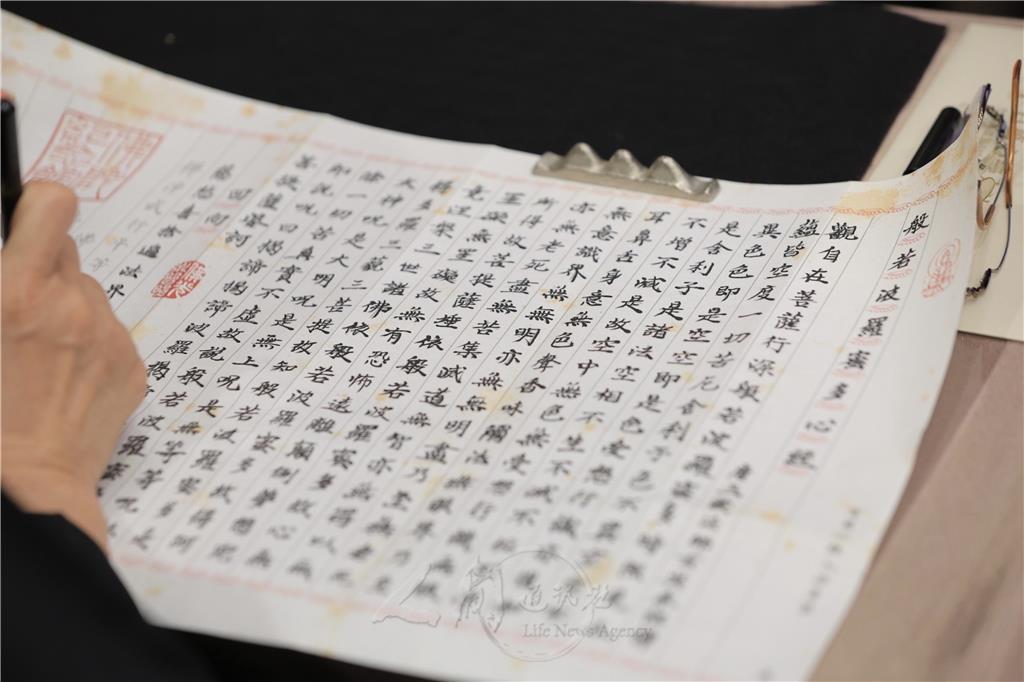 般若波羅蜜多心経
觀自在菩薩行深般若波羅蜜多時照見五
蘊皆空度一切苦厄舍利子色不異空空不
異色色即是空空即是色受想行識亦復如
是舍利子是諸法空相不生不滅不垢不
不增不減是故空中無色無受想行識無
耳鼻舌身意無色聲香味觸法無眼界乃至
無意識界無無明亦無無明盡乃至無
亦無老死盡無苦集滅道無智亦無得以無
所得故菩提薩埵依般若波羅蜜多故心無
罣礙無罣礙故無有恐怖遠離顛倒夢想究
竟涅槃三世諸佛依般若波羅蜜多故得阿
耨多羅三藐三菩提故知般若波羅蜜多是
大神咒是大明咒是無上咒是無等等咒能
除一切苦真實不虛故說般若波羅蜜多咒
即說咒曰揭諦揭諦波羅揭諦波羅
菩提薩婆訶
回向
慈悲喜捨遍法界
人間通訊社
Life News Agency